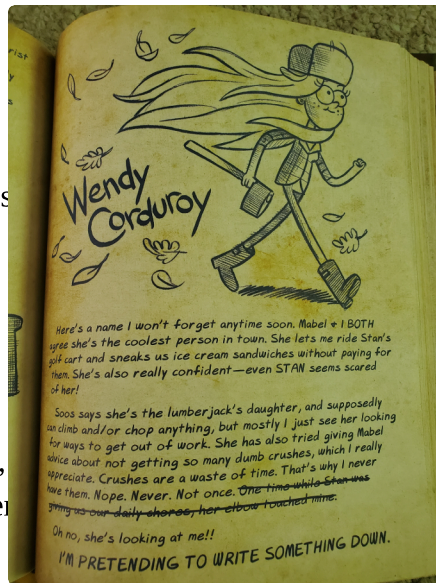 rist
y
s
s
Wendy
Corduroy
Here's a name I won't forget anytime soon. Mabel & I BOTH
agree she's the coolest person in town. She lets me ride Stan's
golf cart and sneaks us ice cream sandwiches without paying for
them. She's also really confident—even STAN seems scared
of her!
Soos says she's the lumberjack's daughter, and supposedly
can climb and/or chop anything, but mostly I just see her looking
for ways to get out of work. She has also tried giving Mabel
advice about not getting so many dumb crushes, which I really
appreciate. Crushes are a waste of time. That's why I never
have them. Nope. Never. Not once. One time while Stan was
giving us our daily chores, her elbow touched mine.
Oh no, she's looking at me!!
I'M PRETENDING TO WRITE SOMETHING DOWN.